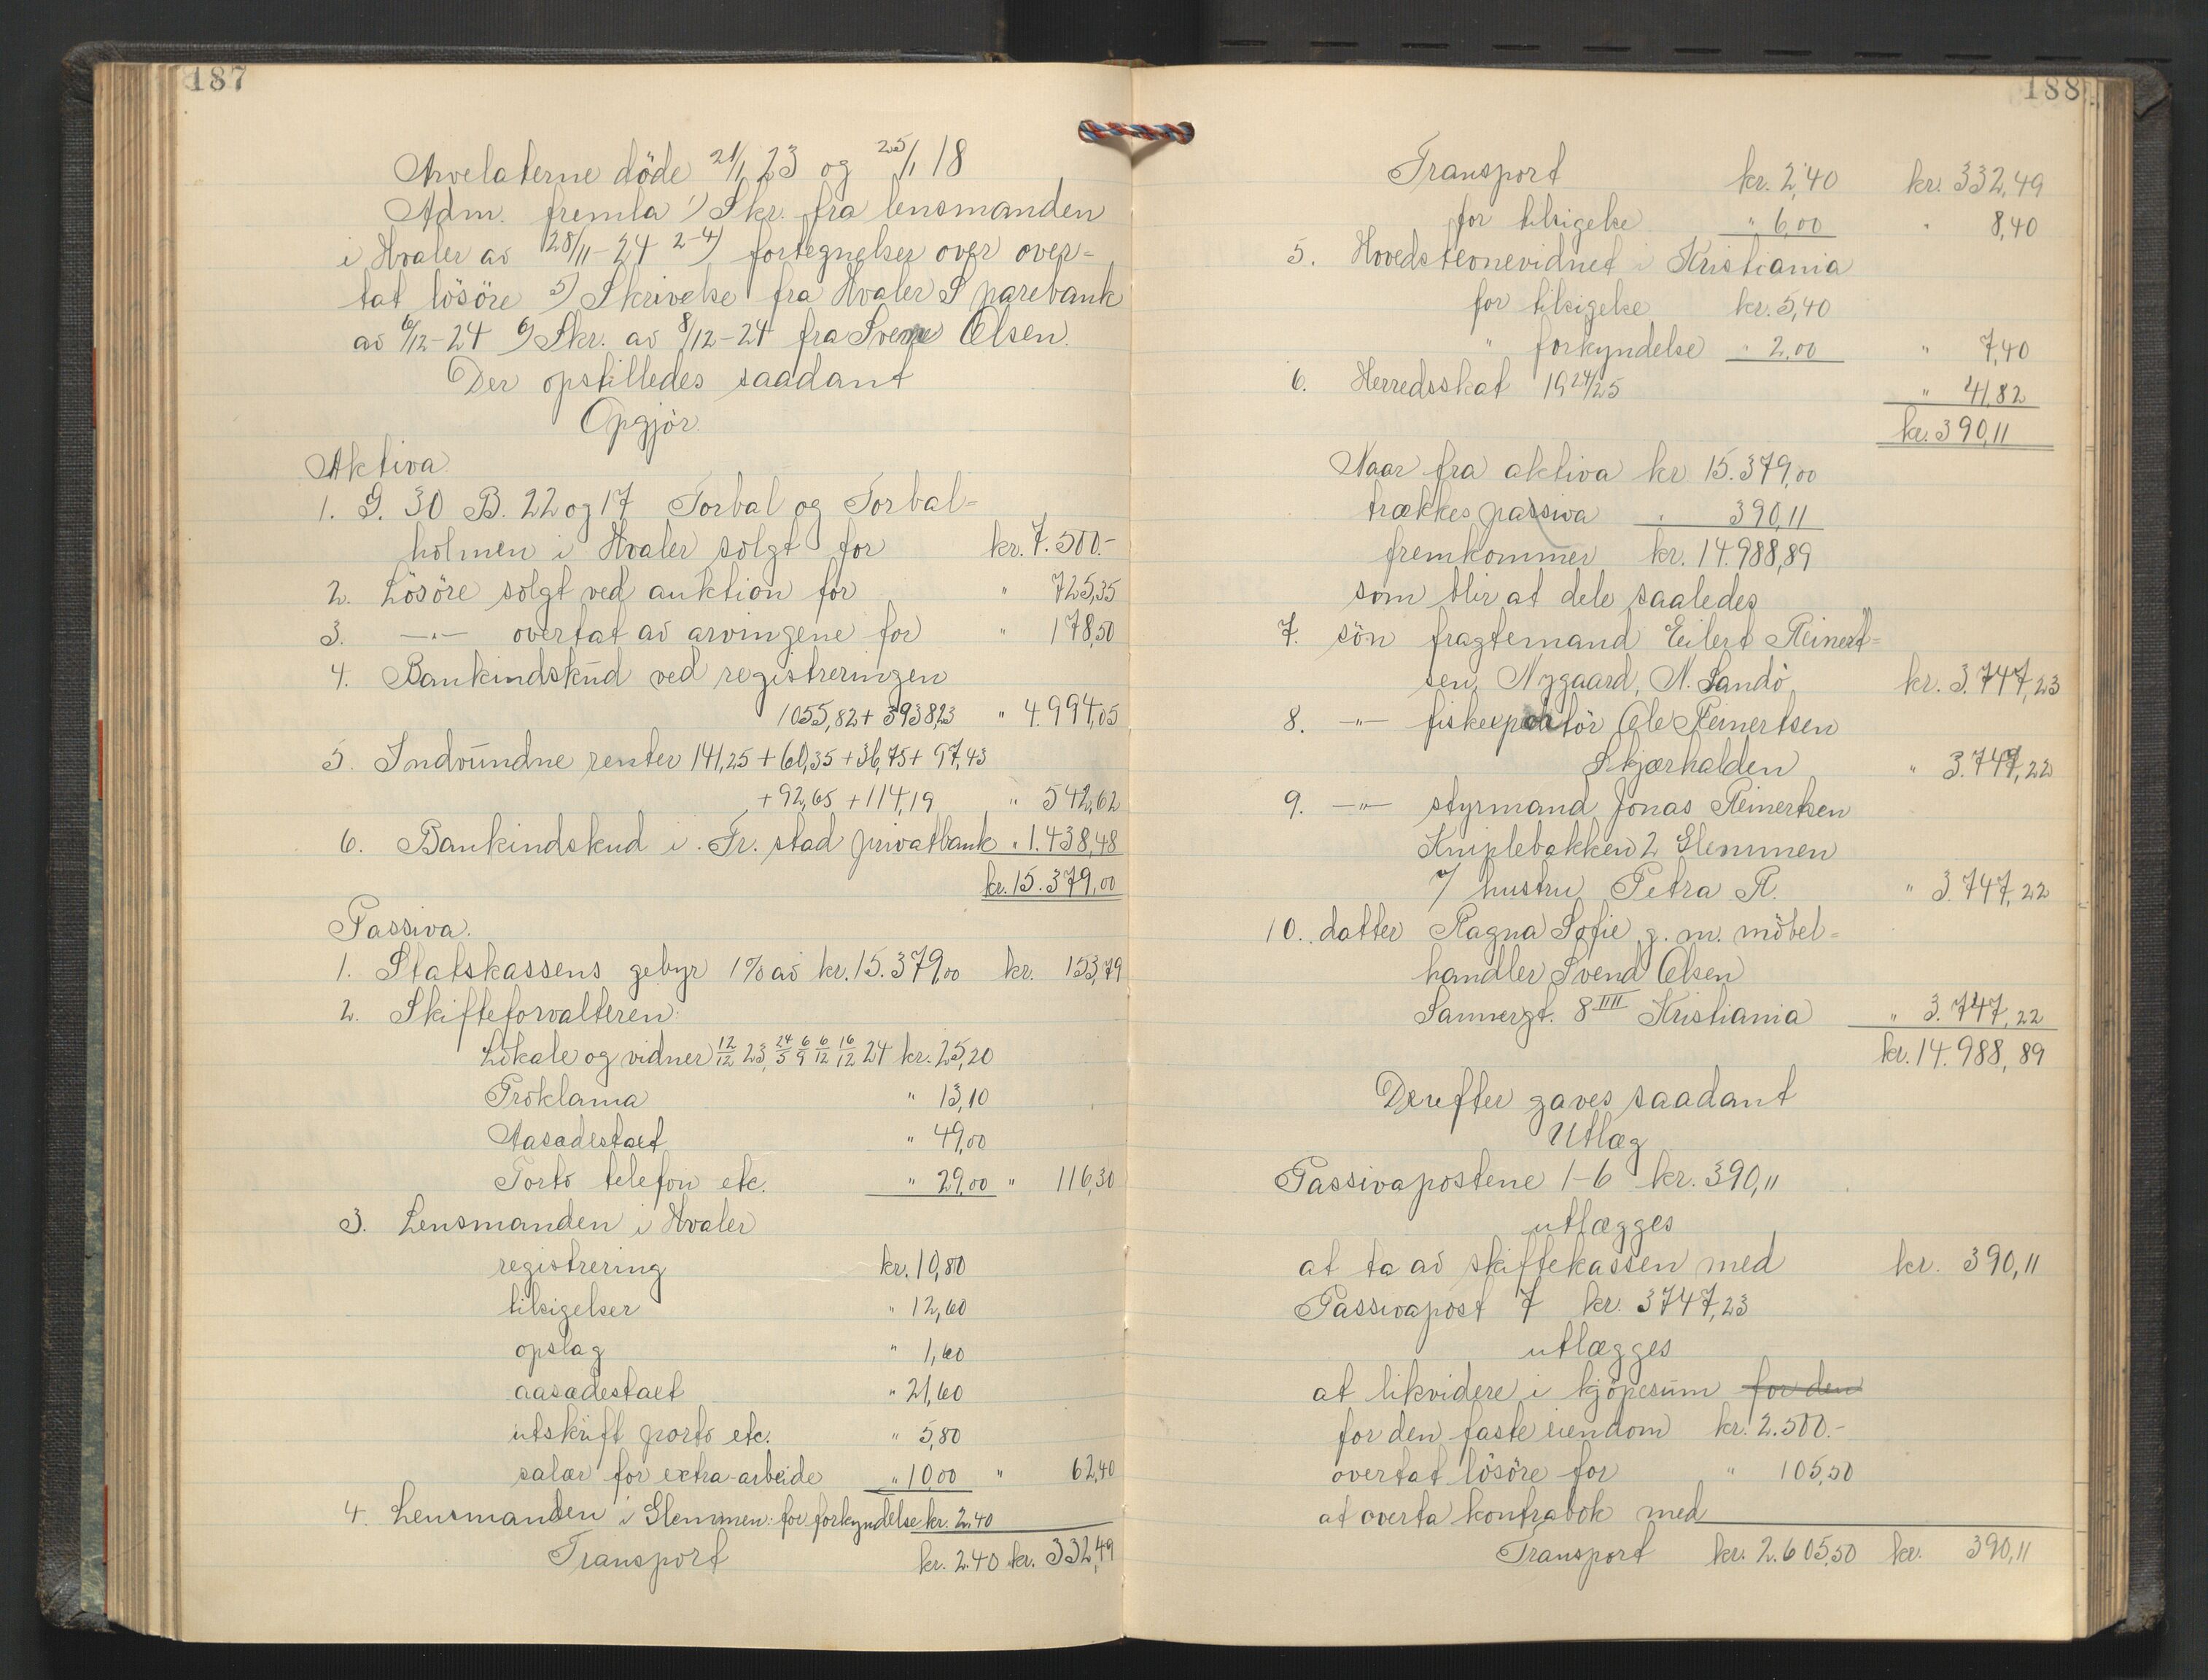 187
Arvelaterne döde 21/1 23 og 25/1 18
Adm. fremla 1) Skr. fra lensmanden
i Hvaler av 28/11-24 2-4) fortegnelser over over-
tat lösöre 5) Skrivelse fra Hvaler Sparebank
av 6/12-24 6) Skr. av 8/12-24 fra Svend Olsen.
Der opstilledes saadant
Opgjör.
Aktiva.
1. G. 30 B. 22 og 17 Torbal og Torbal-
holmen i Hvaler solgt for kr. 7.500.-
2. Lösöre solgt ved auktion for " 725,35
3. —"— overtat av arvingene for " 178,50
4. Bankindskud ved registreringen
1055,82 + 3938,23 " 4.994,05
5. Indvundne renter 141,25 + 60,35 + 36,75 + 97,43
+ 92,65 + 114,19 " 542,62
6. Bankindskud i Fr. stad privatbank " 1.438,48
kr. 15.379,00
Passiva.
1. Statskassens gebyr 1% av kr. 15.379,00 kr. 153,79
2. Skifteforvalteren:
Lokale og vidner 12/12 23, 24/5 6/9 6/12 16/12 24 kr. 25,20
Proklama " 13,10
Aasædestaet " 49,00
Porto telefon etc. " 29,00 " 116,30
3. Lensmanden i Hvaler
registrering kr. 10,80
tilsigelser " 12,60
opslag " 1,60
aasædestaet " 21,60
utskrift porto etc. " 5,80
salær for extra-arbeide " 10,00 " 62,40
4. Lensmanden i Glemmen: for forkyndelse kr. 2.40
Transport kr. 2.40 kr. 332,49
188
Transport kr. 2,40 kr. 332,49
for tilsigelse " 6,00 " 8,40
5. Hovedstevnevidnet i Kristiania
for tilsigelse kr. 5,40
" forkyndelse " 2,00 " 7,40
6. Herredsskat 1924/25 " 41,82
kr. 390,11
Naar fra aktiva kr. 15.379,00
trækkes passiva " 390,11
fremkommer kr. 14.988,89
som blir at dele saaledes
7. sön fragtemand Eilert Reinert-
sen, Nygaard, N. Sandö kr. 3.747,23
8. —"— fiskeexportör Ole Reinertsen
Skjærhalden " 3.747,22
9. —"— styrmand Jonas Reinertsen
Kniplebakken 2 Glemmen
v/ hustru Petra R. " 3.747,22
10. datter Ragna Sofie g. m. möbel-
handler Svend Olsen
Sannergt. 8 IIII Kristiania " 3.747,22
kr. 14.988,89
Derefter gaves saadant
Utlæg
Passivapostene 1-6 kr. 390,11
utlægges
at ta av skiftekassen med kr. 390,11
Passivapost 7 kr. 3747,23
utlægges
at likvidere i kjöpesum for den
for den faste eiendom kr. 2.500.-
overtat lösöre for " 105,50
at overta kontrabok med
Transport kr. 2.605,50 kr. 390,11